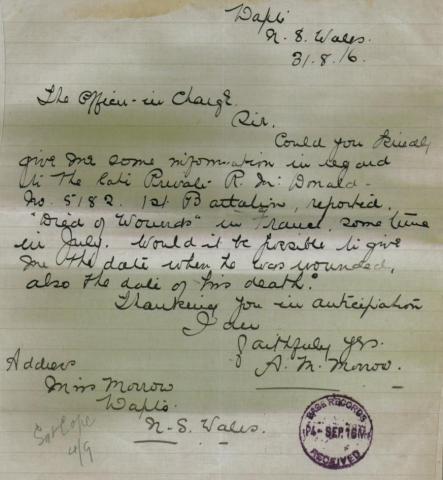 Wapli
N. S. Wales.
31.8.16.
The Officer-in Charge.
Sir.
Could you kindly
give me some information in regard
to the late Private R. McDonald -
No. 5182. 1st Battalion, reported
"Died of Wounds" in France, some time
in July. Would it be possible to give
me the date when he was wounded,
also the date of his death.
Thanking you in anticipation
I am
faithfully yrs.
A. M. Morrow.
Address
Miss Morrow
N. S. Wales.
4/9
BASE RECORDS
4- SEP. 16
RECEIVED